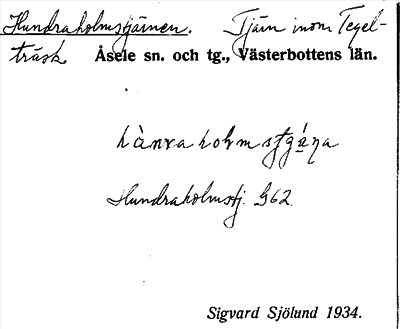 Hundraholmstjärnen. Tjärn inom Tegel-
träsk. Åsele sn. och tg., Västerbottens län.
hànraholmstjána
Hundraholmstj. G62.
Sigvard Sjölund 1934.